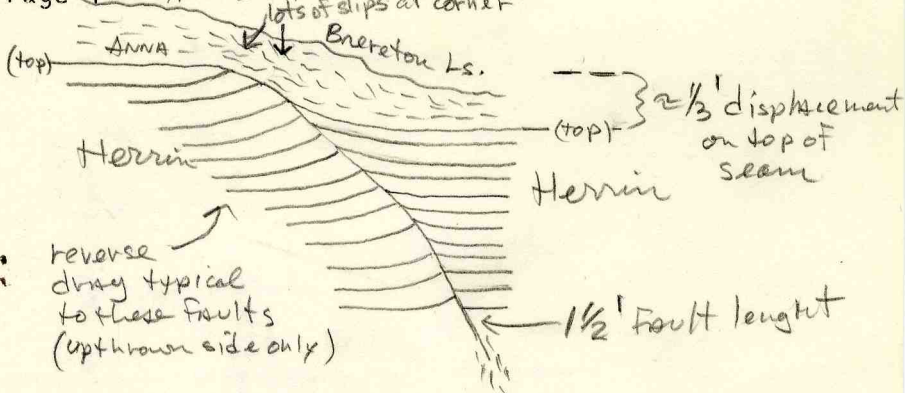 lots of slips at corner
ANNA
Brereton Ls.
(top)
(top)
≈ 1/3' displacement
on top of
seam
Herrin
Herrin
reverse
drag typical
to these Faults
(upthrown side only)
1 1/2' Fault lenght